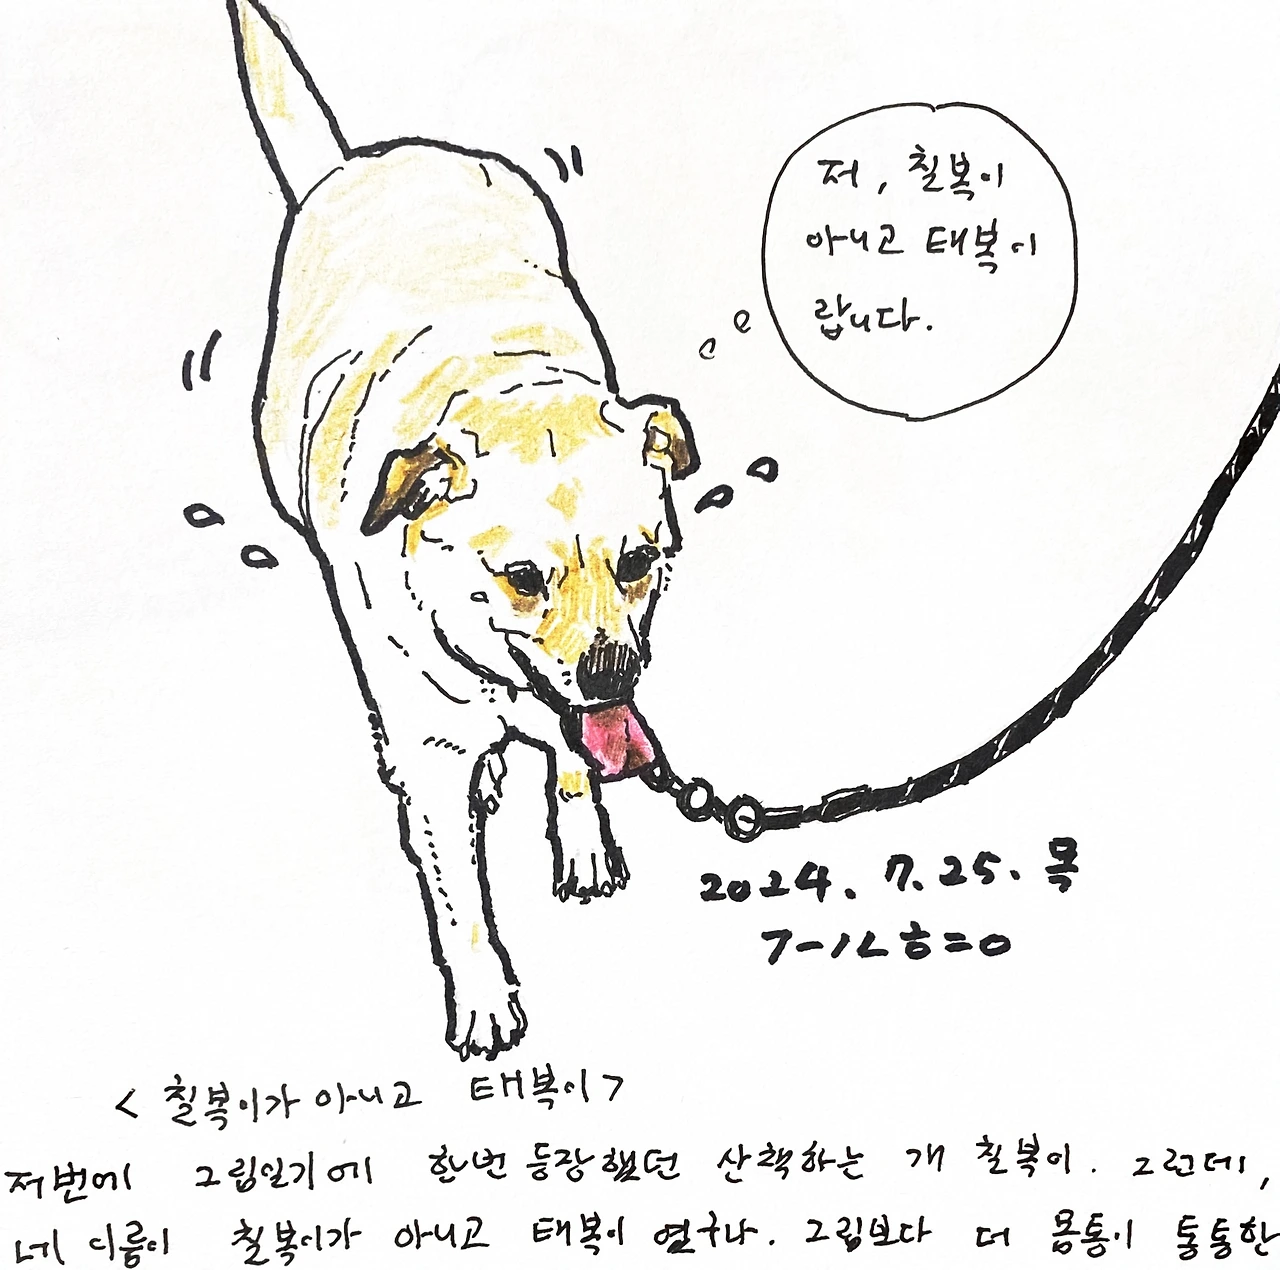 저, 칠복이
아니고 태복이
랍니다.
2024. 7. 25. 목
< 칠복이가 아니고 태복이 >
저번에 그림일기에 한번 등장했던 산책하는 개 칠복이. 그런데,
네 이름이 칠복이가 아니고 태복이 였구나. 그림보다 더 몸통이 통통한